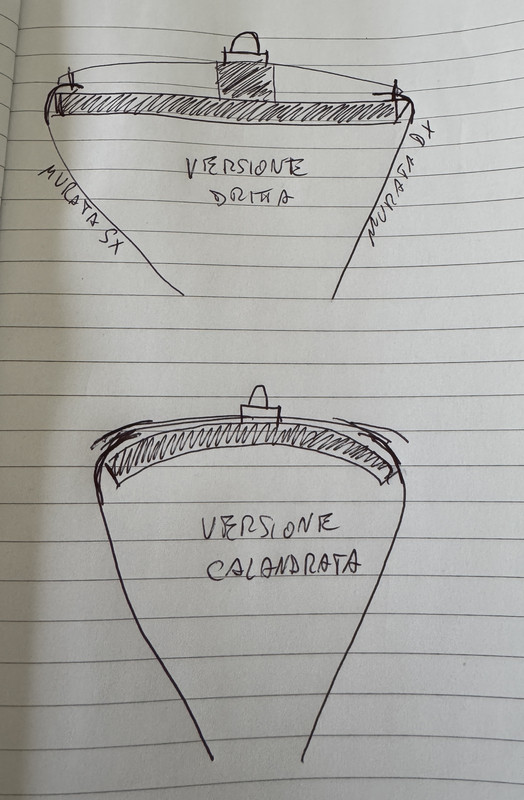 VERSIONE
DRITTA
MURATA SX
MURATA DX
VERSIONE
CALANDRATA